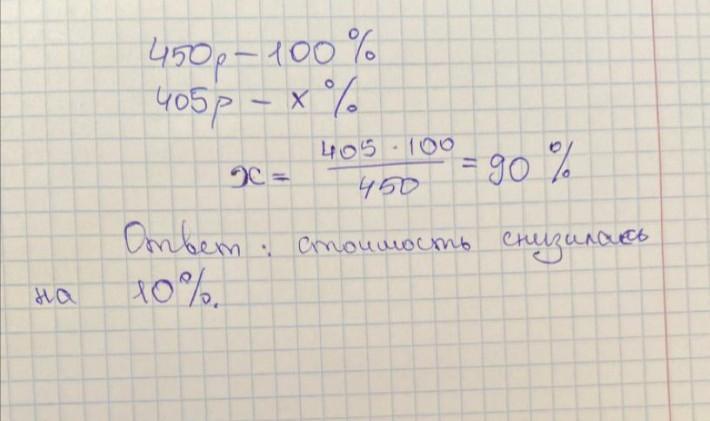 450р – 100 %
405р – х %
x = 405 · 100 / 450 = 90 %
Ответ: стоимость снизилась
на 10%.